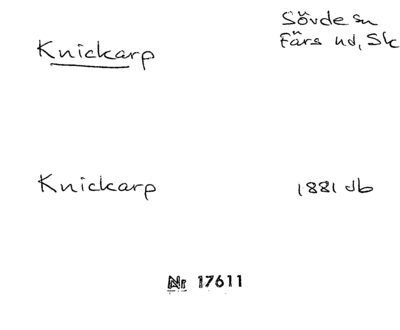 Knickarp
Sövde sn
Färs hd, Sk
Knickarp
1881 db
Nr 17611